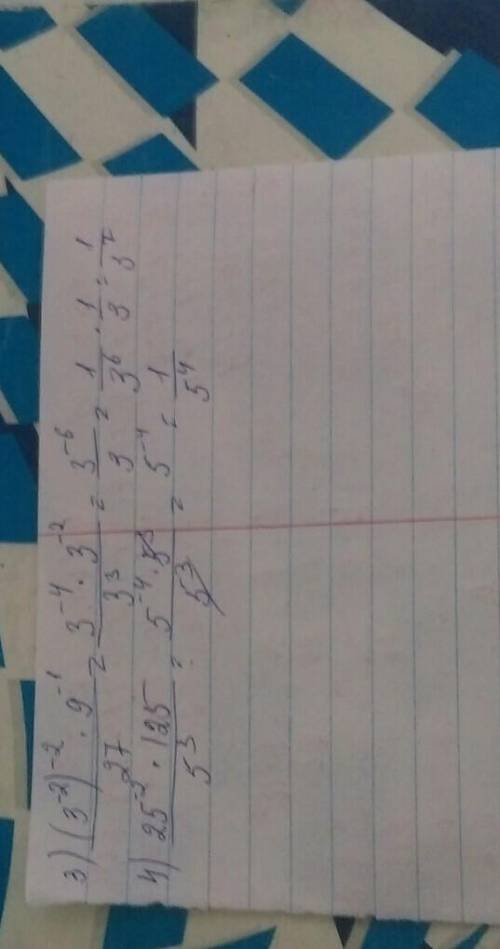 3) (3^-2)^-2 · 9^-1 / 27 = 3^-4 · 3^-2 / 3^3 = 3^-6 / 3 = 1 / 3^6 · 1 / 3 = 1 / 3^7
4) 25^-2 · 125 / 5^3 = 5^-4 · 5^3 / 5^3 = 5^-4 = 1 / 5^4